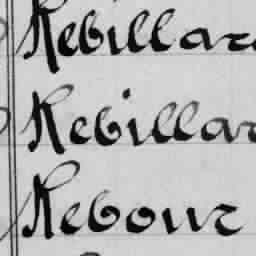 Rebillar
Rebillar
Rebour